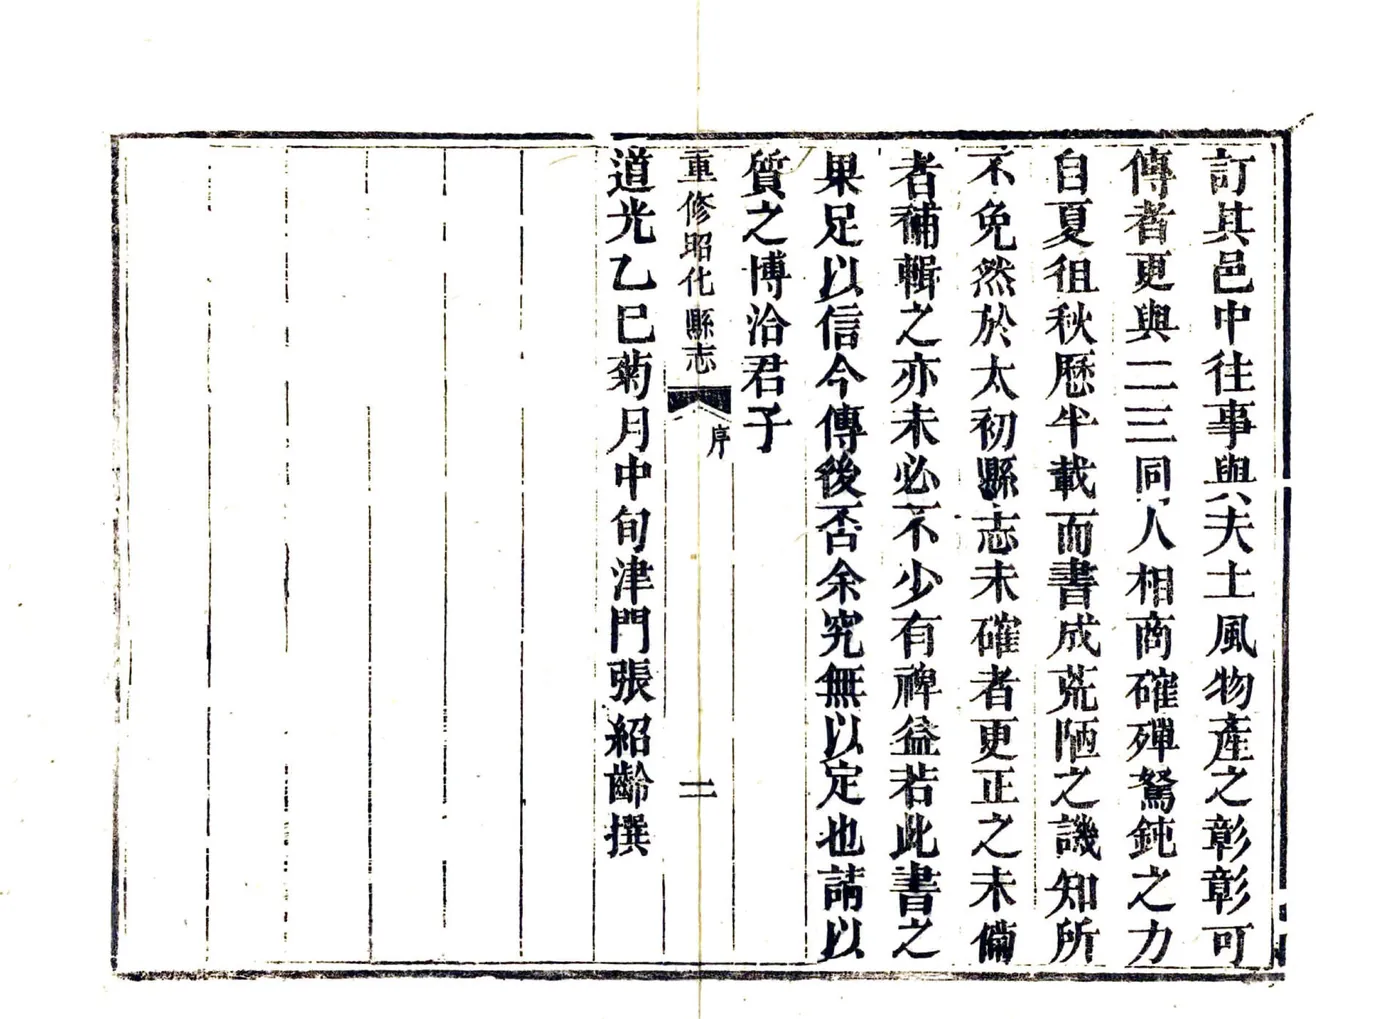 訂其邑中往事與夫土風物產之彰彰可
傳者更與二三同人相商確殫駑鈍之力
自夏徂秋歷半載而書成荒陋之譏知所
不免然於太初縣志未確者更正之未備
者補輯之亦未必不少有裨益若此書之
果足以信今傳後否余究無以定也請以
質之博洽君子
重修昭化縣志 序 二
道光乙巳菊月中旬津門張紹齡撰